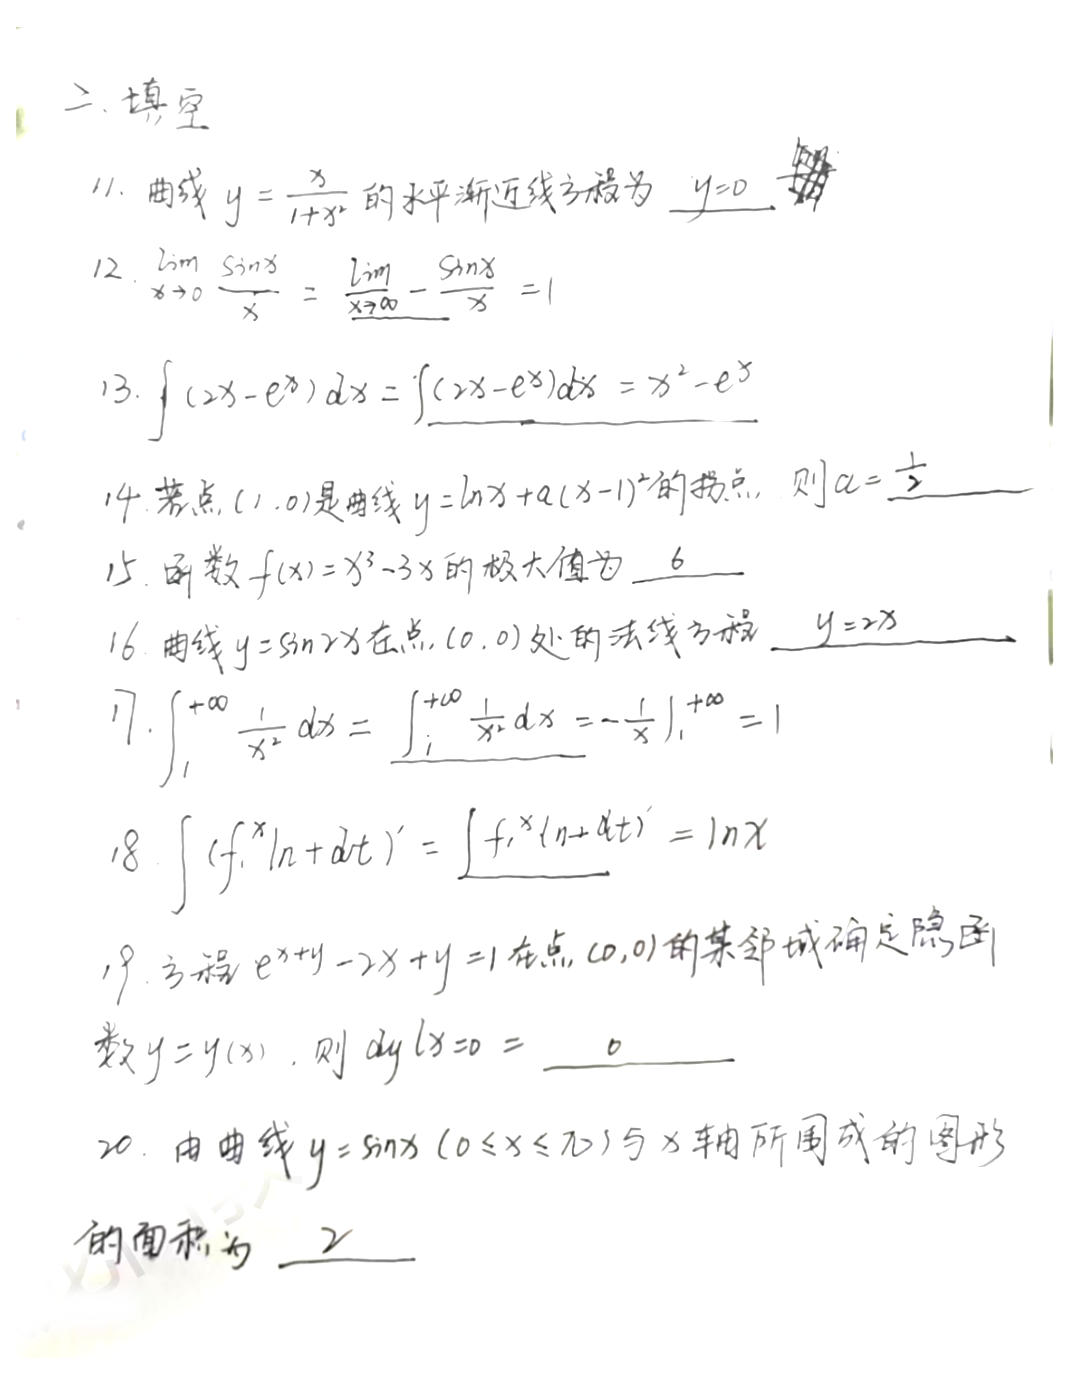 二、填空
11. 曲线 y = x/(1+x²) 的水平渐近线方程为 y=0
12. lim x→0 sinx/x = lim x→∞ - sinx/x = 1
13. ∫(2x-eˣ)dx = ∫(2x-eˣ)dx = x²-eˣ
14. 若点(1.0)是曲线 y=lnx+a(x-1)²的拐点, 则a= 1/2
15. 函数 f(x)=x³-3x的极大值为 6
16. 曲线 y=sin2x在点(0.0)处的法线方程 y=2x
17. ∫₁^+∞ 1/x² dx = ∫₁^+∞ 1/x² dx = -1/x |₁^+∞ = 1
18. ∫(f₁ˣ ln+dt)′ = ∫f₁ˣ(ln+dt)′ = lnx
19. 方程 e^x+y -2x+y=1在点(0,0)的某邻域确定隐函
数y=y(x). 则 dy|x=0 = 0
20. 由曲线 y=sinx (0≤x≤π)与x轴所围成的图形
的面积为 2